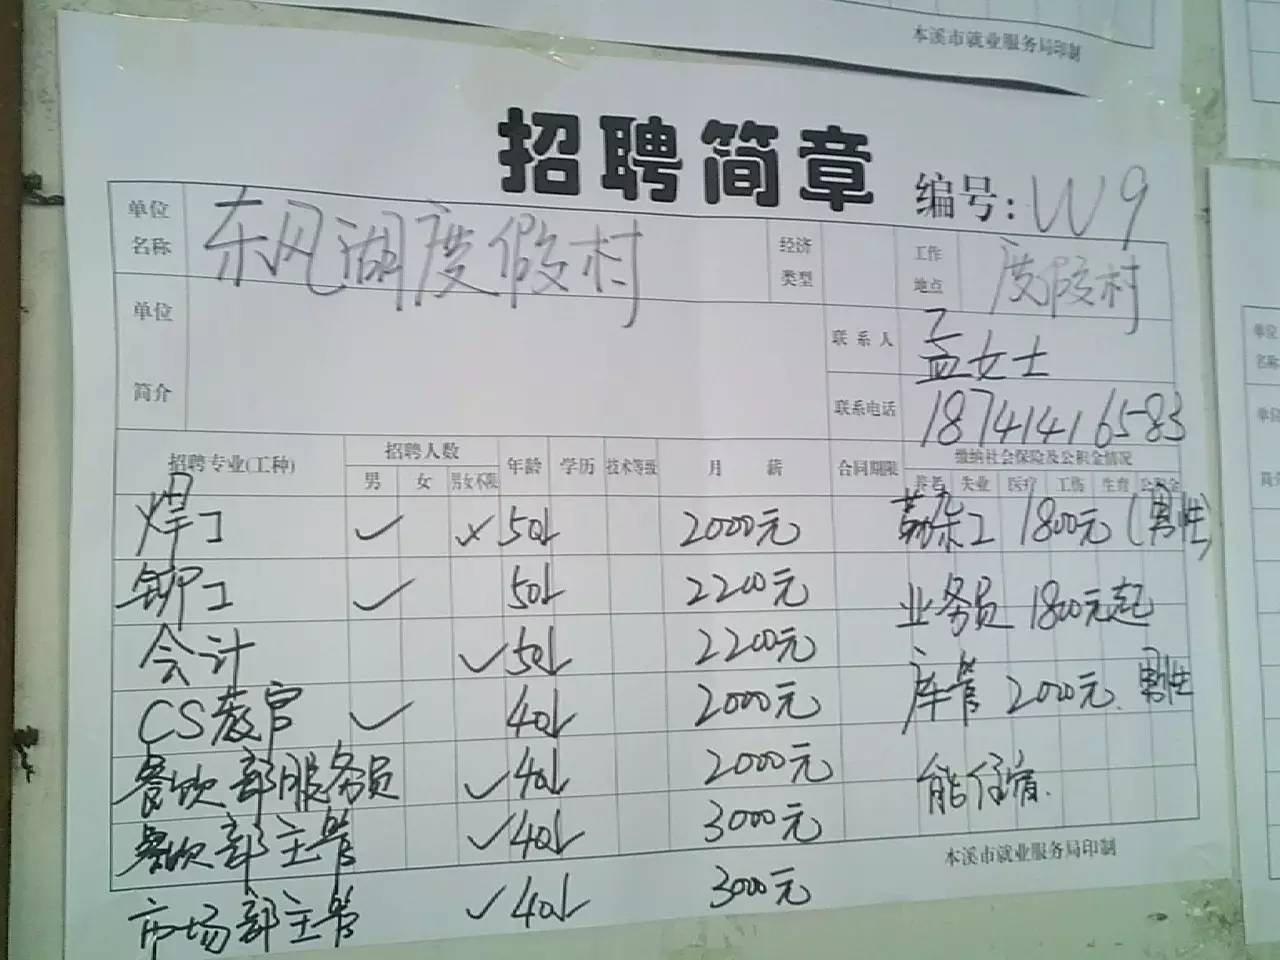 本溪市就业服务局印制
招聘简章
编号: W9
单位名称 东风湖度假村 经济类型 工作地点 度假村
单位简介
联系人 孟女士
联系电话 18741416583
招聘专业(工种) 招聘人数 年龄 学历 技术等级 月薪 合同期限 缴纳社会保险及公积金情况
男 女 男女不限 养老 失业 医疗 工伤 生育 公积金
焊工 ✓ × 50以 2000元 勤杂工 1800元 (男性)
铆工 ✓ 50以 2200元 业务员 1800元起
会计 ✓ 50以 2200元 库管 2000元. 男性
CS教官 ✓ 40以 2000元
餐饮部服务员 ✓ 40以 2000元 能住宿.
餐饮部主管 ✓ 40以 3000元
本溪市就业服务局印制
市场部主管 ✓ 40以 3000元
单位名称
单位